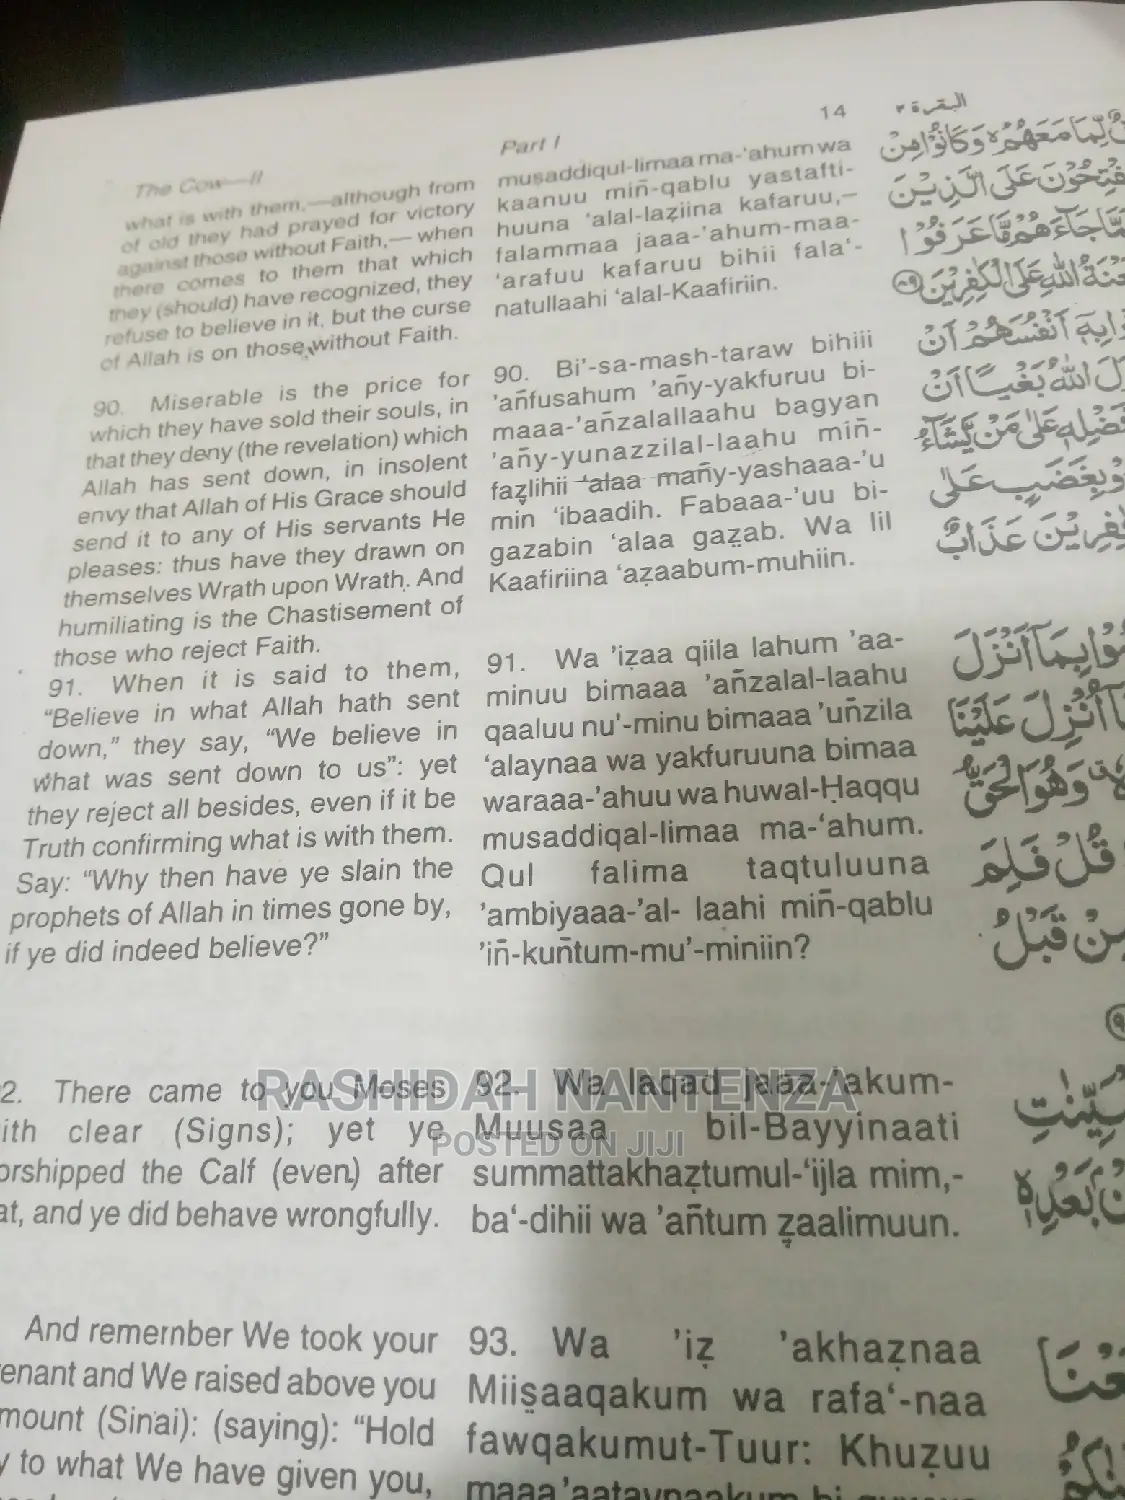 The Cow—II
what is with them,—although from
of old they had prayed for victory
against those without Faith,— when
there comes to them that which
they (should) have recognized, they
refuse to believe in it, but the curse
of Allah is on those without Faith.
90. Miserable is the price for
which they have sold their souls, in
that they deny (the revelation) which
Allah has sent down, in insolent
envy that Allah of His Grace should
send it to any of His servants He
pleases: thus have they drawn on
themselves Wrath upon Wrath. And
humiliating is the Chastisement of
those who reject Faith.
91. When it is said to them,
“Believe in what Allah hath sent
down,” they say, “We believe in
what was sent down to us”: yet
they reject all besides, even if it be
Truth confirming what is with them.
Say: “Why then have ye slain the
prophets of Allah in times gone by,
if ye did indeed believe?”
2. There came to you Moses
ith clear (Signs); yet ye
orshipped the Calf (even) after
at, and ye did behave wrongfully.
And remember We took your
enant and We raised above you
mount (Sinai): (saying): “Hold
y to what We have given you,
Part I
14
musaddiqul-limaa ma-‘ahum wa
kaanuu miñ-qablu yastafti-
huuna ‘alal-laẓiina kafaruu,–
falammaa jaaa-’ahum-maa-
‘arafuu kafaruu bihii fala‘-
natullaahi ‘alal-Kaafiriin.
90. Bi’-sa-mash-taraw bihiii
’añfusahum ’añy-yakfuruu bi-
maaa-’añzalallaahu bagyan
’añy-yunazzilal-laahu miñ-
faẓlihii ‘alaa mañy-yashaaa-’u
min ‘ibaadih. Fabaaa-’uu bi-
gazabin ‘alaa gaẓab. Wa lil
Kaafiriina ‘aẓaabum-muhiin.
91. Wa ’iẓaa qiila lahum ’aa-
minuu bimaaa ’añzalal-laahu
qaaluu nu’-minu bimaaa ’uñzila
‘alaynaa wa yakfuruuna bimaa
waraaa-’ahuu wa huwal-Ḥaqqu
musaddiqal-limaa ma-‘ahum.
Qul falima taqtuluuna
’ambiyaaa-’al- laahi miñ-qablu
’iñ-kuñtum-mu’-miniin?
92. Wa laqad jaaa-’akum-
Muusaa bil-Bayyinaati
summattakhaẓtumul-‘ijla mim,-
ba‘-dihii wa ’añtum ẓaalimuun.
93. Wa ’iẓ ’akhaẓnaa
Miiṣaaqakum wa rafa‘-naa
fawqakumut-Tuur: Khuẓuu
maaa ’aataynaakum bi
البقرة ٢
لِّمَا مَعَهُمْ وَكَانُوْا مِنْ
عَلَى الَّذِيْنَ
جَآءَهُمْ مَّا عَرَفُوْا
اللّٰهِ عَلَى الْكٰفِرِيْنَ ٨٩
اَنْفُسَهُمْ اَنْ
اللّٰهُ بَغْيًا اَنْ
عَلٰى مَنْ يَّشَآءُ
بِغَضَبٍ عَلٰى
عَذَابٌ
بِمَآ اَنْزَلَ
اُنْزِلَ عَلَيْنَا
وَهُوَ الْحَقُّ
قُلْ فَلِمَ
مِنْ قَبْلُ
RASHIDAH NANTENZA
POSTED ON JIJI